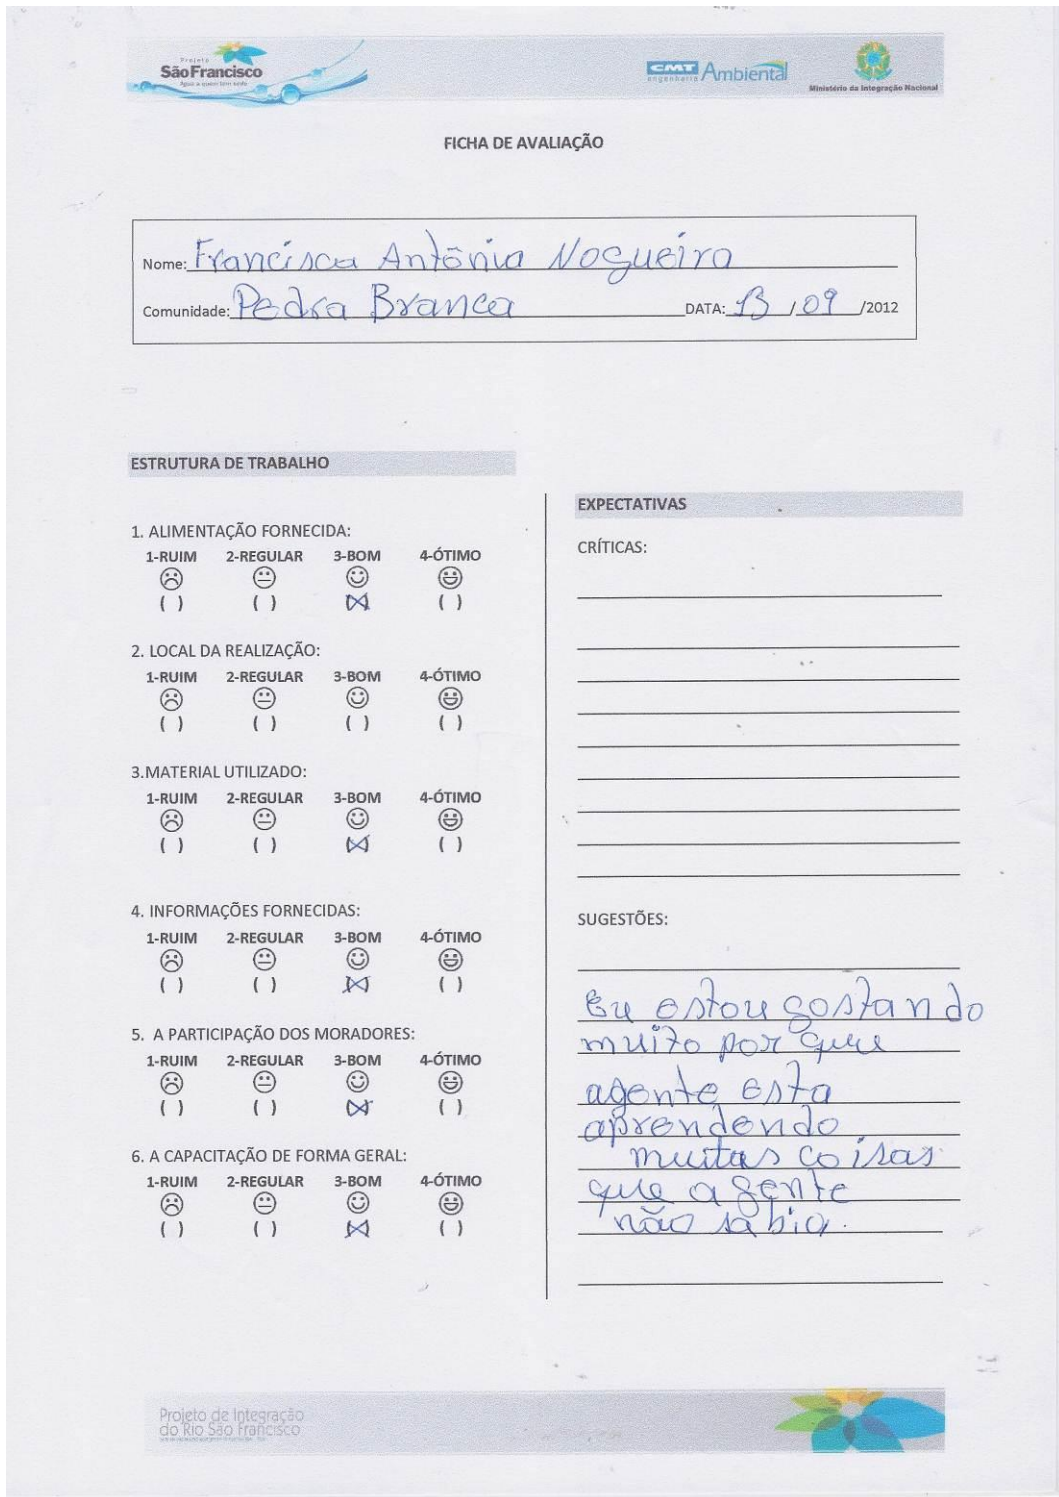 Projeto
São Francisco
Água a quem tem sede
CMT Ambiental
engenharia
Ministério da Integração Nacional
FICHA DE AVALIAÇÃO
Nome: Francisca Antônia Nogueira
Comunidade: Pedra Branca DATA: 13 / 09 /2012
ESTRUTURA DE TRABALHO
1. ALIMENTAÇÃO FORNECIDA:
1-RUIM 2-REGULAR 3-BOM 4-ÓTIMO
( ) ( ) (X) ( )
2. LOCAL DA REALIZAÇÃO:
1-RUIM 2-REGULAR 3-BOM 4-ÓTIMO
( ) ( ) ( ) ( )
3.MATERIAL UTILIZADO:
1-RUIM 2-REGULAR 3-BOM 4-ÓTIMO
( ) ( ) (X) ( )
4. INFORMAÇÕES FORNECIDAS:
1-RUIM 2-REGULAR 3-BOM 4-ÓTIMO
( ) ( ) (X) ( )
5. A PARTICIPAÇÃO DOS MORADORES:
1-RUIM 2-REGULAR 3-BOM 4-ÓTIMO
( ) ( ) (X) ( )
6. A CAPACITAÇÃO DE FORMA GERAL:
1-RUIM 2-REGULAR 3-BOM 4-ÓTIMO
( ) ( ) (X) ( )
EXPECTATIVAS
CRÍTICAS:
SUGESTÕES:
Eu estou gostando
muito por que
agente esta
aprendendo
muitas coisas
que a gente
não sabia.
Projeto de Integração
do Rio São Francisco